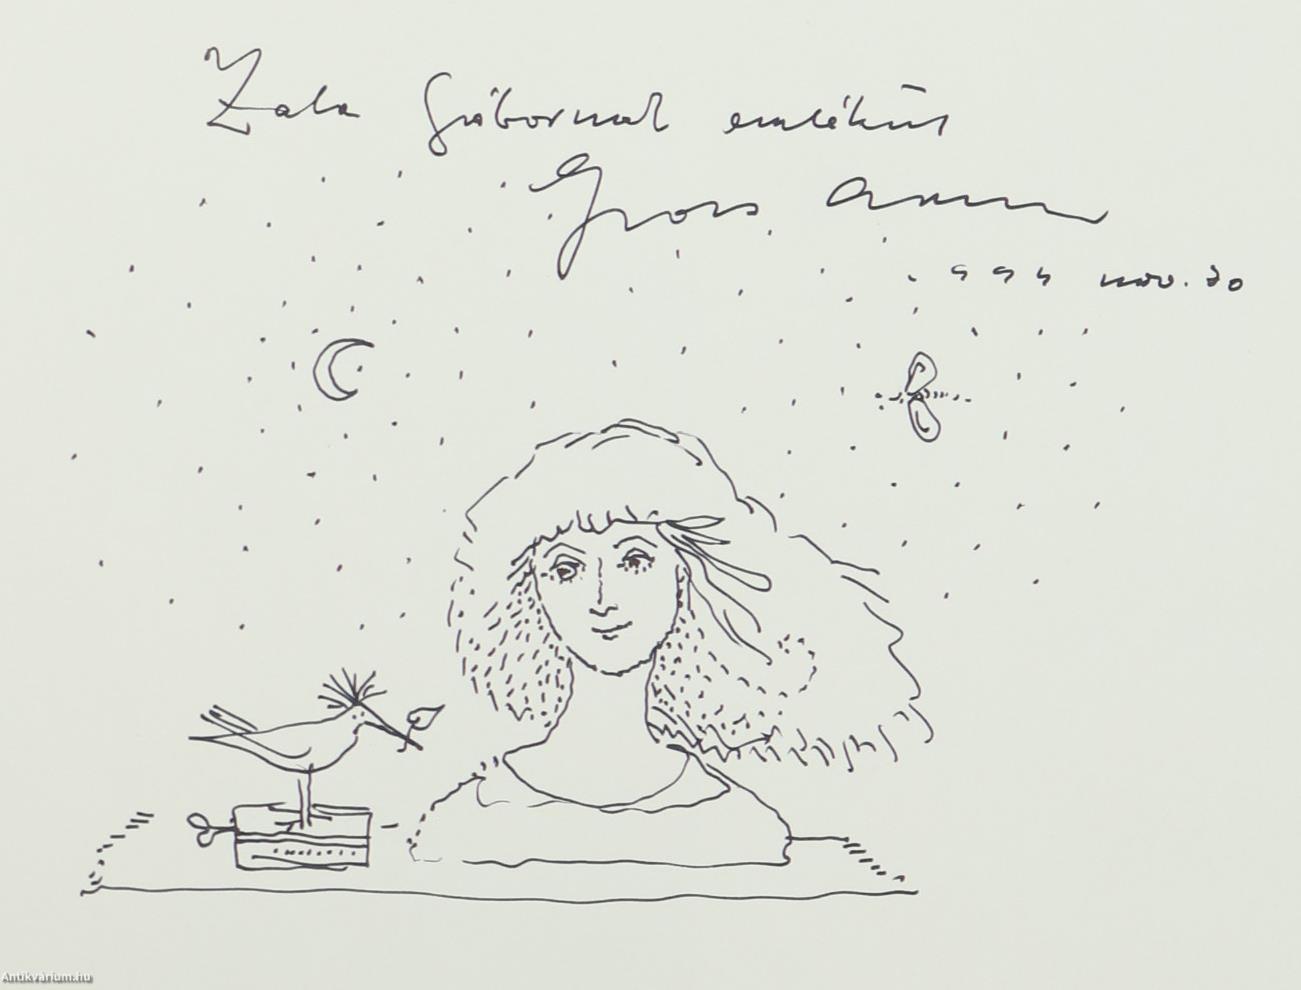 Zala Gábornak emlékül
Gross Arnold
1994 nov. 30
Antikvárium.hu